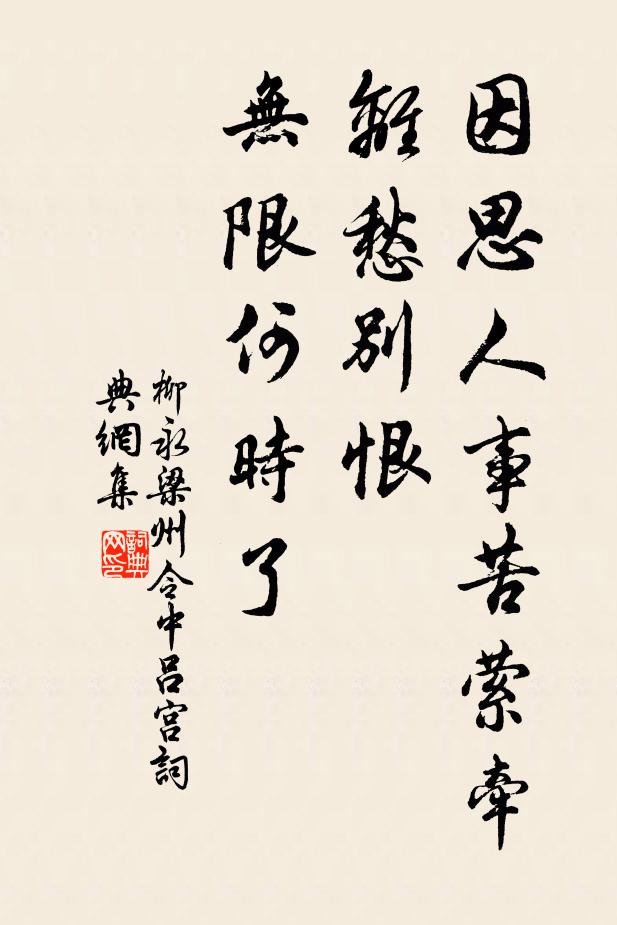 因思人事苦縈牽
離愁別恨
無限何時了
柳永梁州令中呂宮詞
典網集
詞典
网印